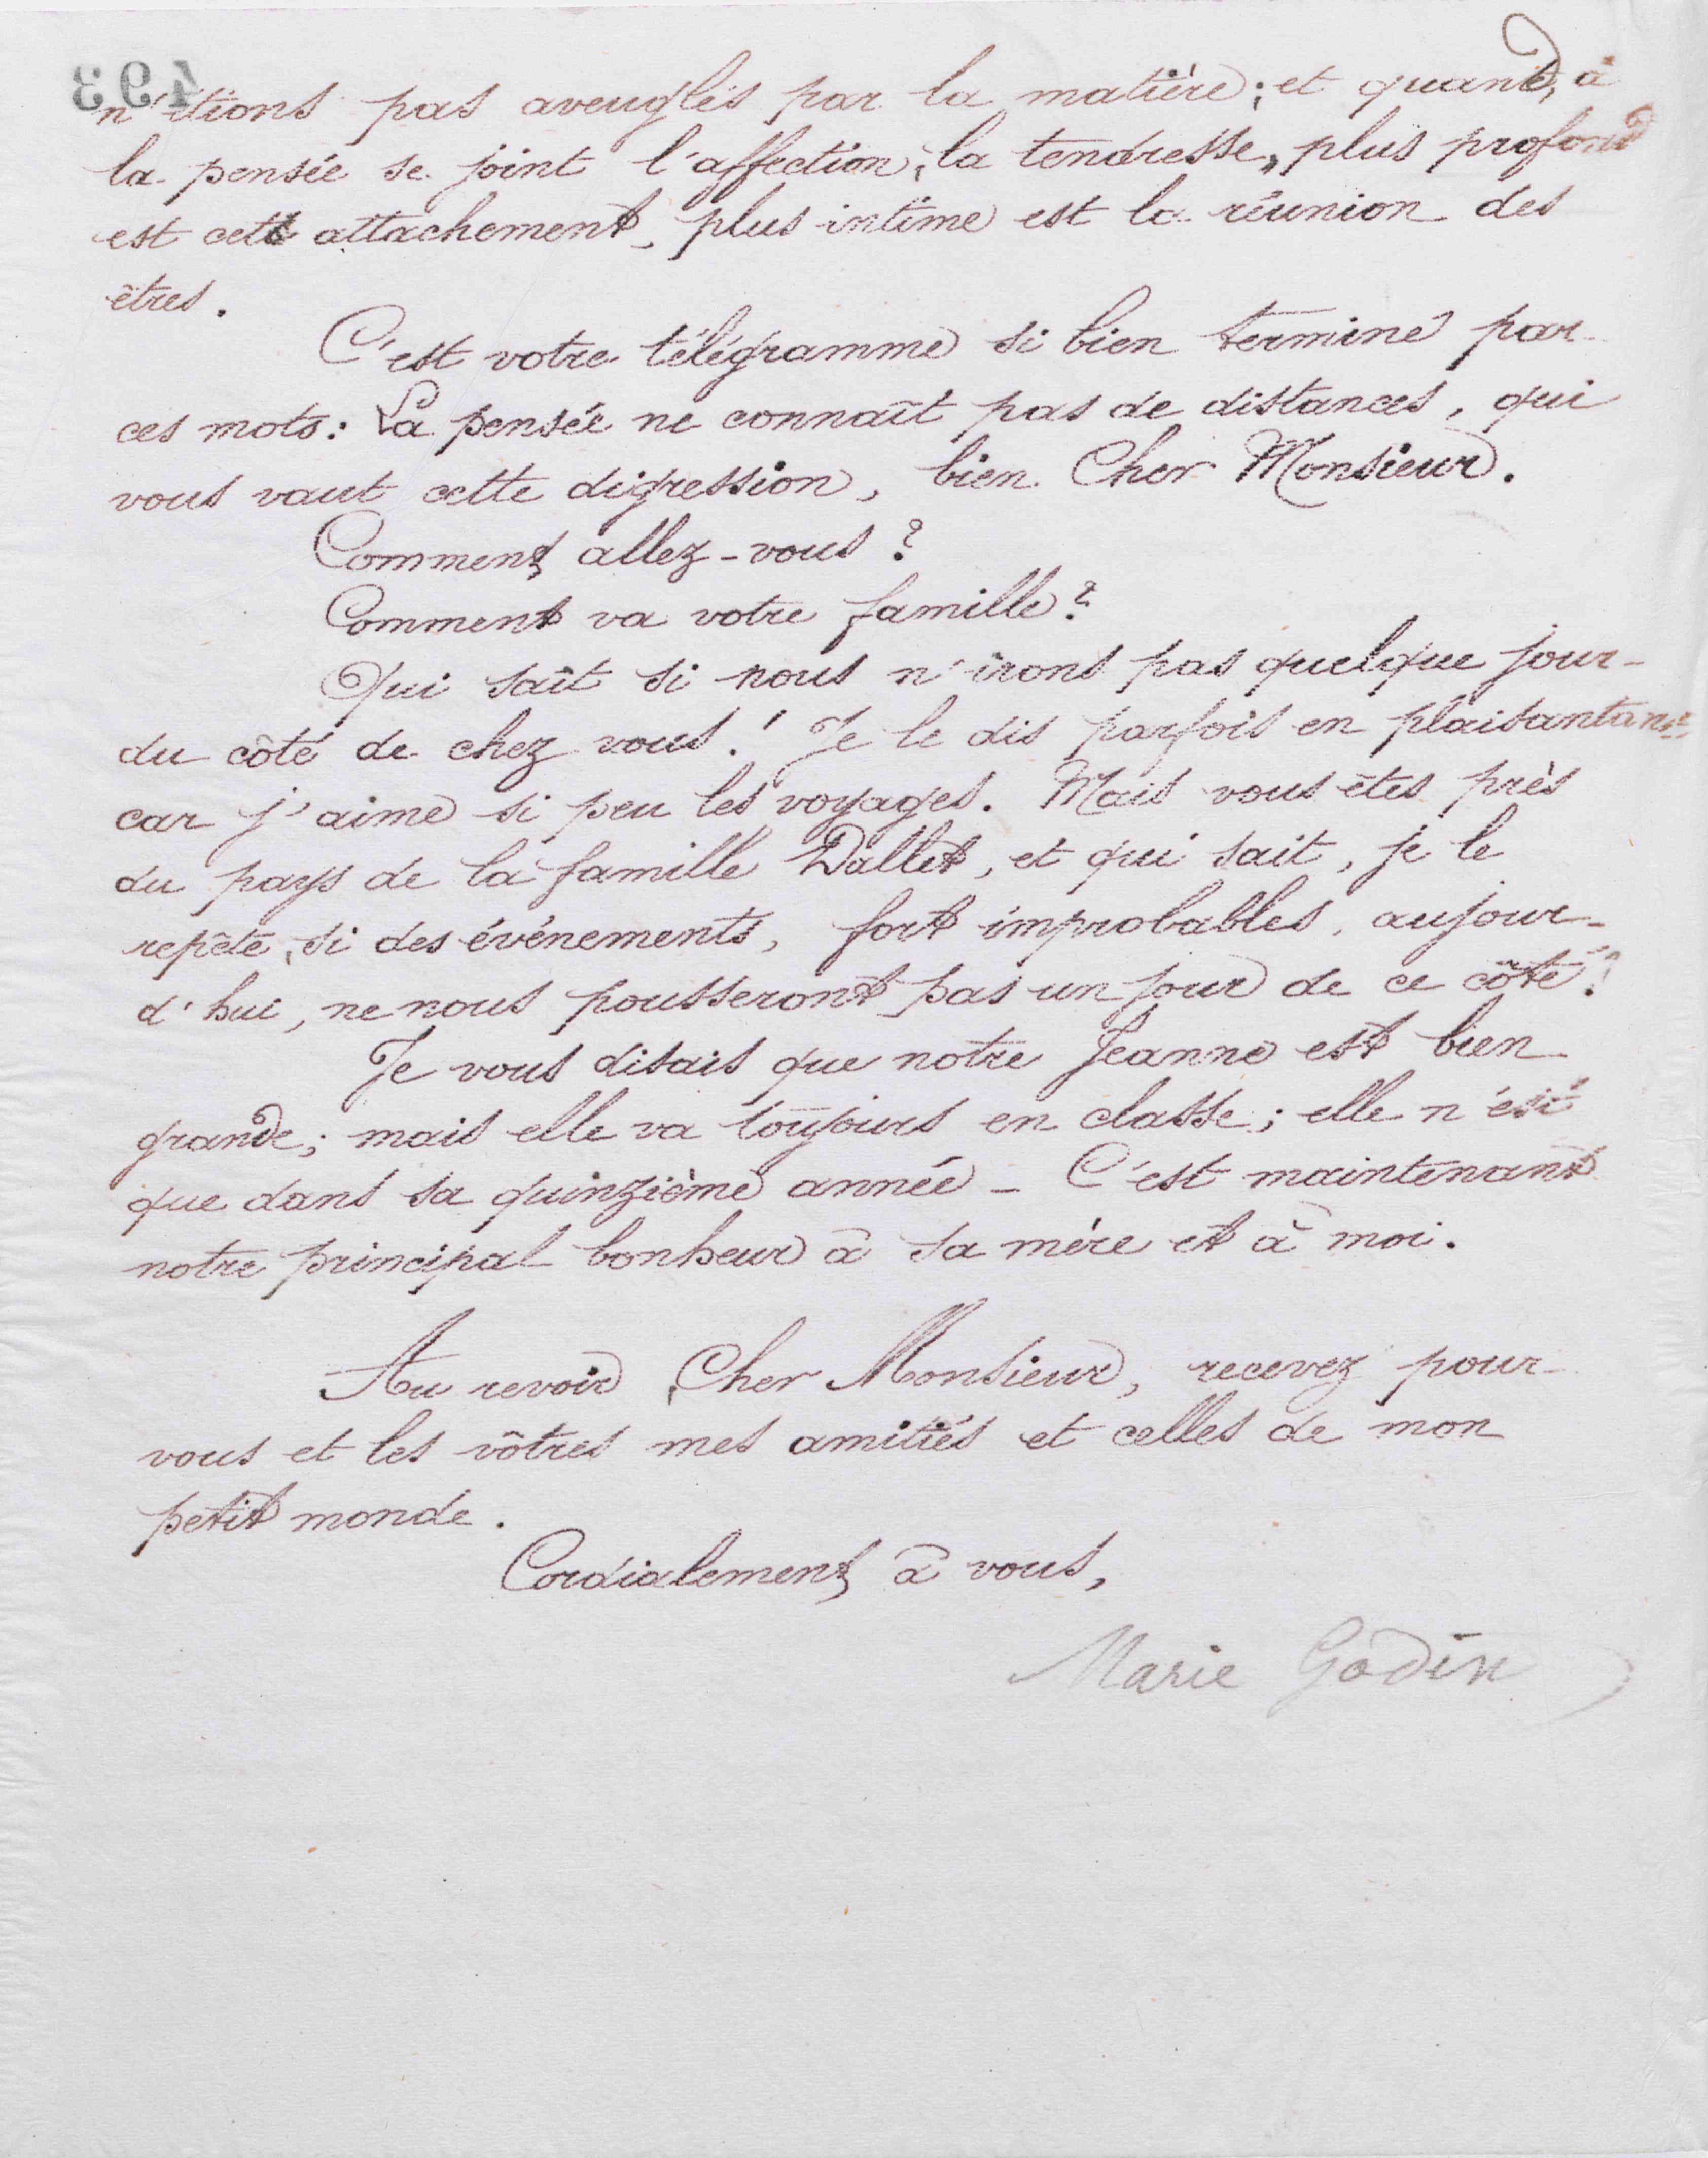 493
n'étions pas aveuglés par la matière ; et quand, à
la pensée se joint l'affection, la tendresse, plus profond
est cet attachement, plus intime est la réunion des
êtres.
C'est votre télégramme si bien terminé par
ces mots : La pensée ne connaît pas de distances, qui
vous vaut cette digression, bien Cher Monsieur.
Comment allez-vous ?
Comment va votre famille ?
Qui sait si nous n'irons pas quelque jour
du côté de chez vous ! Je le dis parfois en plaisantant,
car j'aime si peu les voyages. Mais vous êtes près
du pays de la famille Dallet, et qui sait, je le
repète, si des événements, fort improbables, aujour-
d'hui, ne nous pousseront pas un jour de ce côté ?
Je vous disais que notre Jeanne est bien
grande ; mais elle va toujours en classe ; elle n'est
que dans sa quinzième année - C'est maintenant
notre principal bonheur à sa mère et à moi.
Au revoir, Cher Monsieur, recevez pour
vous et les vôtres mes amitiés et celles de mon
petit monde.
Cordialement à vous,
Marie Godin